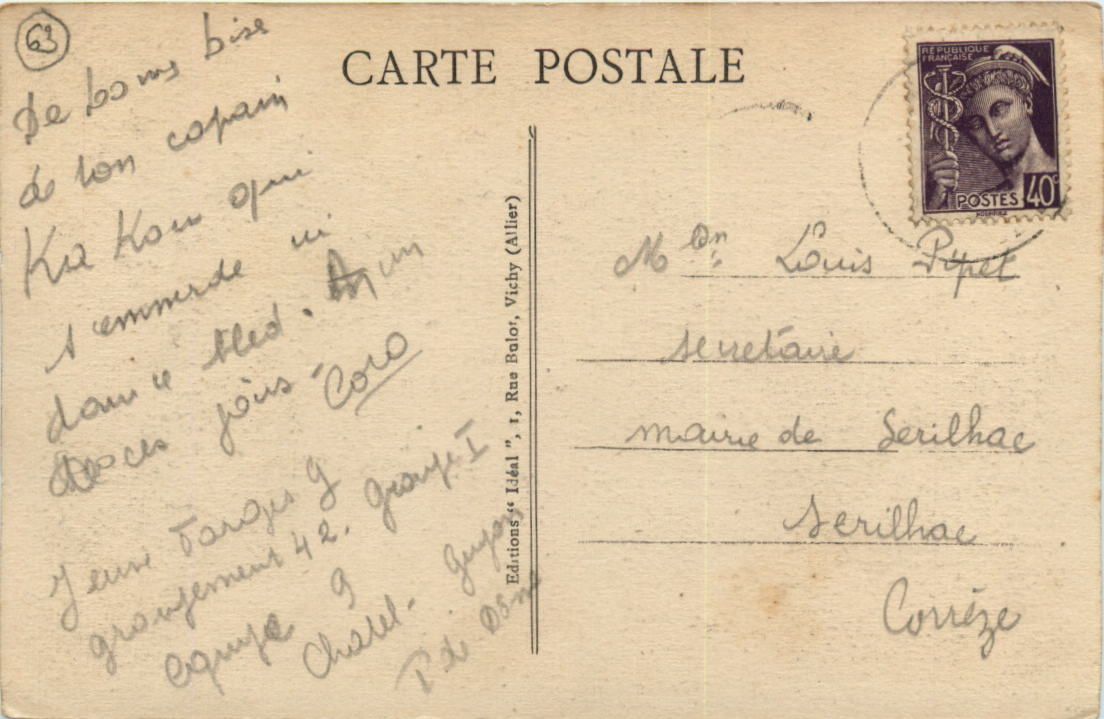 63
De bons bise
de ton copain
Kra Kou qui
s'emmerde ici
dans ce bled.
des ces jours -
Coco
Jeune Farges J
groupement 42. Groupe I
équipe 9
Chatel-Guyon
P de Dôme
CARTE POSTALE
Editions "Idéal", 1, Rue Bulot, Vichy (Allier)
RÉPUBLIQUE
FRANÇAISE
POSTES 40c
Louis Pipet
secretaire
mairie de Serilhac
Serilhac
Corrèze